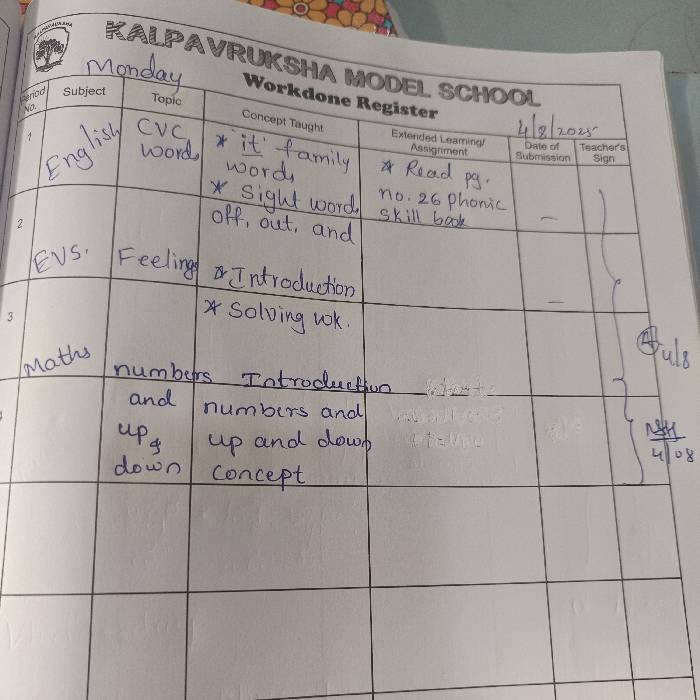 KALPAVRUKSHA MODEL SCHOOL
Monday
Workdone Register
4/8/2025
Period No.
Subject
Topic
Concept Taught
Extended Learning/ Assignment
Date of Submission
Teacher's Sign
1
English
CVC words
* "it" family words
* Sight words off, out, and
* Read pg. no. 26 phonic skill book
—
2
EVS.
Feelings
* Introduction
* Solving wk.
—
3
Maths
numbers and up & down
Introduction numbers and up and down concept
4/8
4/08